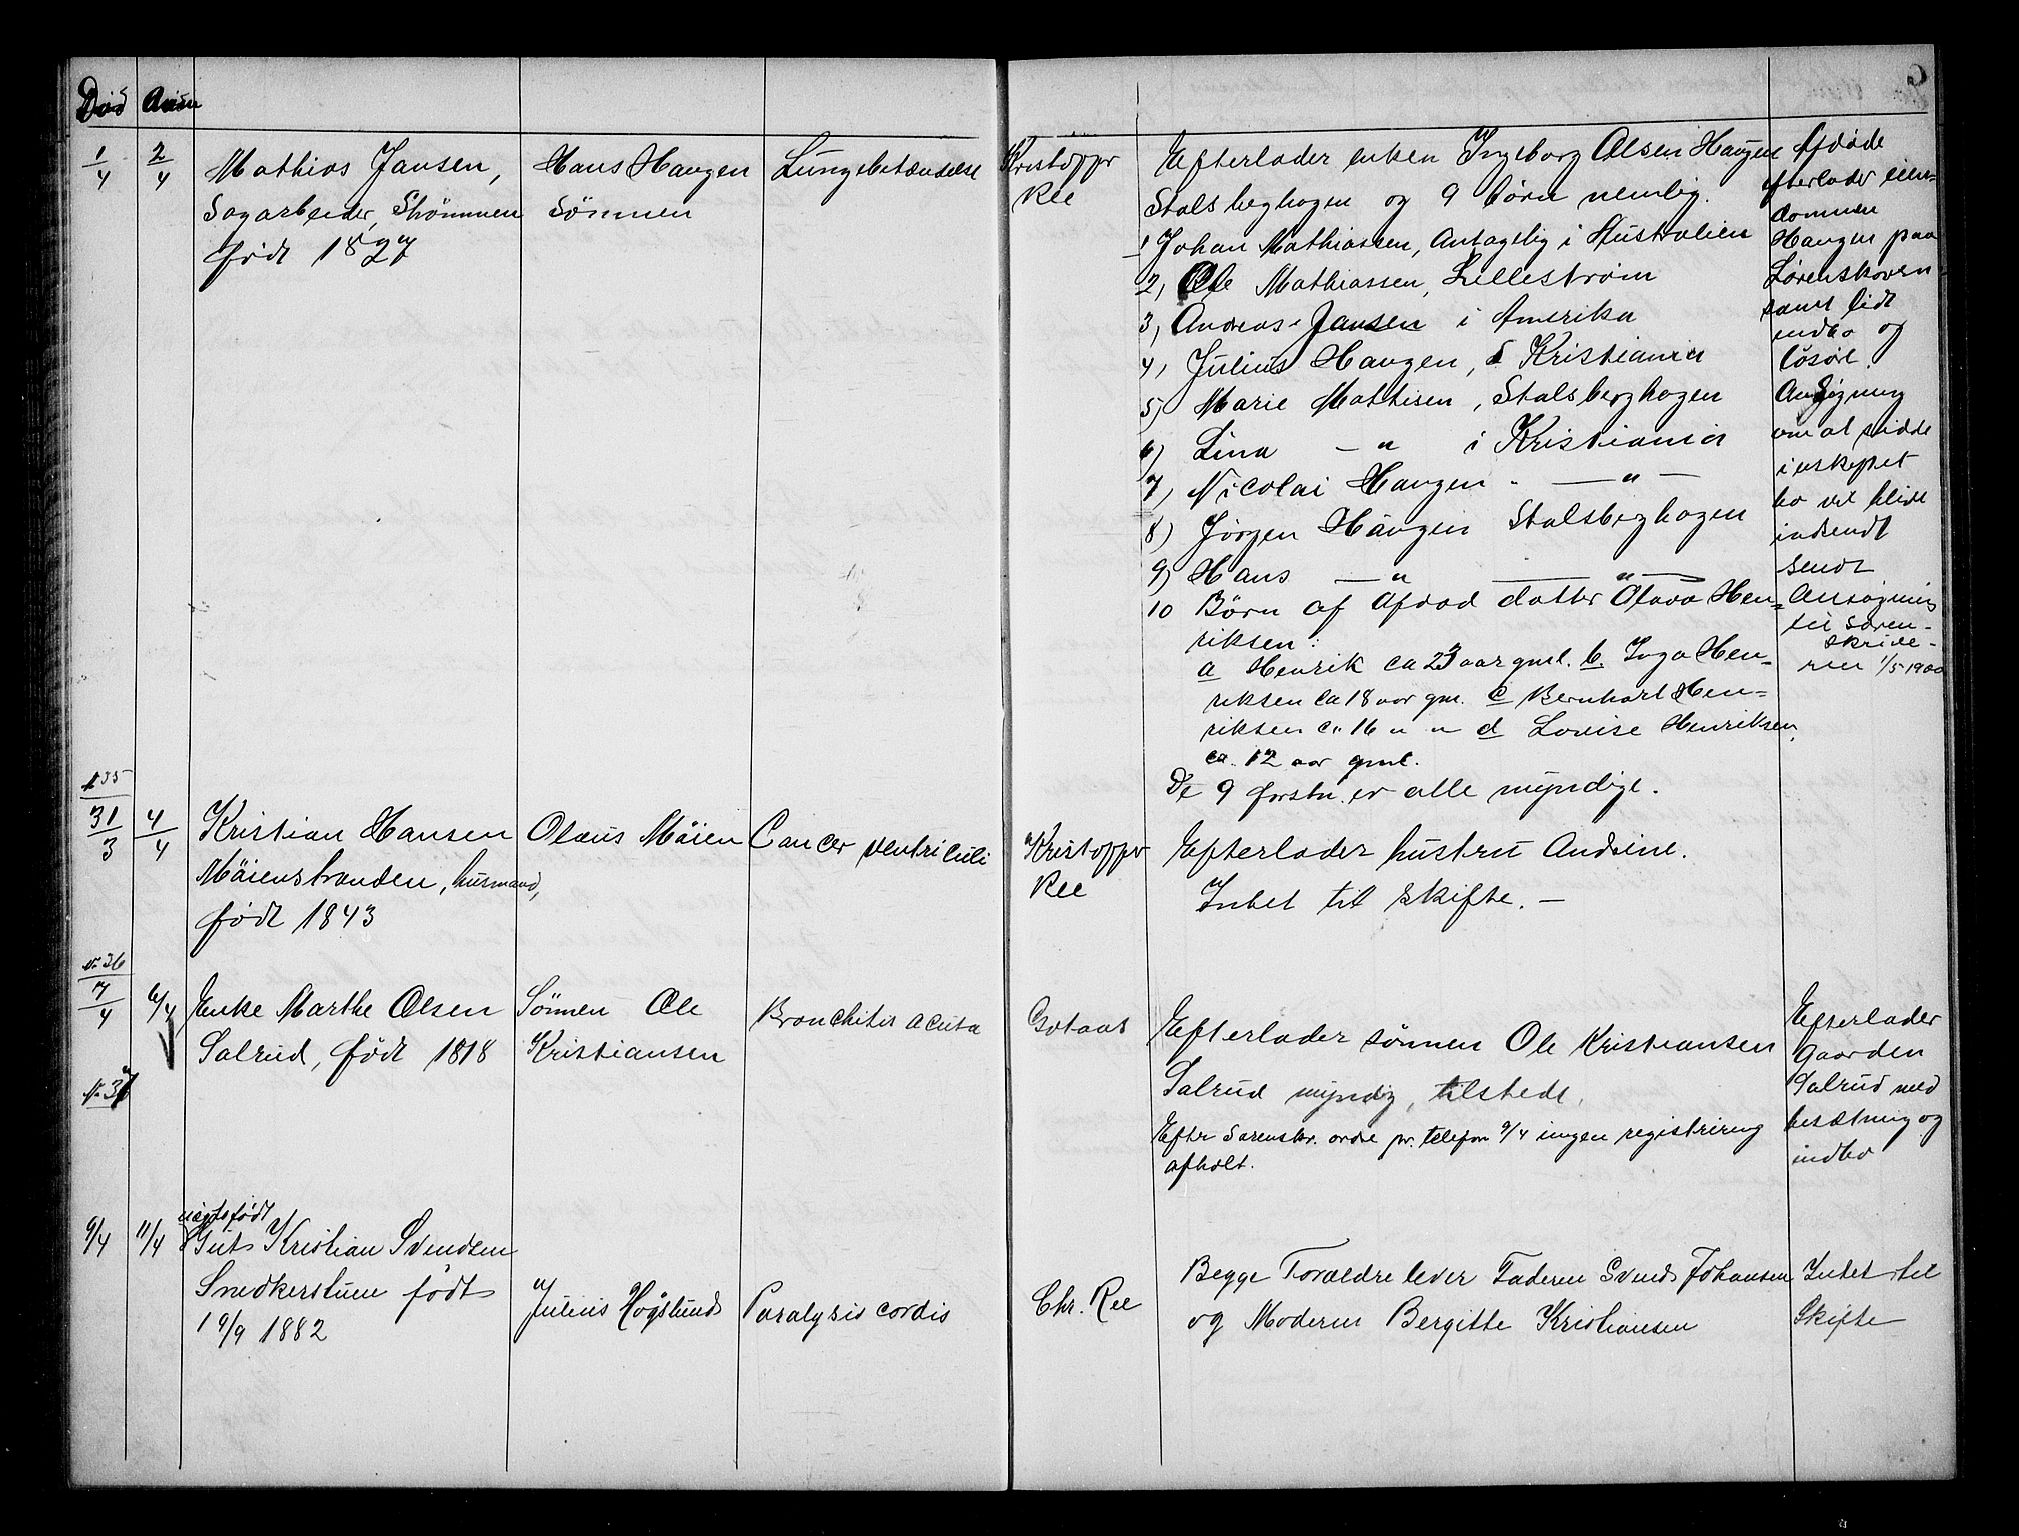 Død Anm
1/4 2/4 Mathias Jansen, Hans Haugen Lungebetændelse Kristoffer
Sagarbeider, Strømmen Sönnen Ree
født 1827
Efterlader enken Ingeborg Olsen Haugen
Stalsberghagen og 9 børn nemlig.
1 Johan Mathiassen, Antagelig i Australien
2, Ole Mathiassen, Lillestrøm
3, Andreas Jansen i Amerika
4, Julius Haugen, i Kristiania
5) Marie Mathisen, Stalsberghagen
6) Lina — " i Kristiania
7, Nicolai Haugen — " —
8) Jørgen Haugen Stalsberghagen
9) Hans — " — " —
10 Børn af Afdød datter Olava Hen=
riksen:
a Henrik ca 23 aar gml. b. Inga Hen=
riksen ca 18 aar gm. c Bernhart Hen=
riksen ca 16 " " d Lovise Henriksen,
ca. 12 aar gml.
De 9 førstn. er alle myndige.
Afdøde
efterlader eien=
dommen
Haugen paa
Lørenskoven
samt lidt
indbo og
løsøre.
Ansøgning
om at sidde
i uskiftet
bo vil blive
indsendt
sendt
Ansøgning
til Soren-
skrive-
ren 1/5 1900
№ 35
31/3 4/4 Kristian Hansen Olaus Möien Cancer ventriculi Kristoffer
Möienstranden, husmand, Ree
født 1843
Efterlader hustru Andrine.
Intet til skifte. —
№ 36
7/4 6/4 Enke Marthe Olsen Sönnen Ole Bronchitis acuta Gotaas
Salrud, født 1818 Kristiansen
№ 37
Efterlader sönnen Ole Kristiansen
Salrud myndig, tilstede.
Efter Sorenskr. ordre pr. telefon 9/4 ingen registrering
afholt.
Efterlader
Gaarden
Salrud med
besætning og
indbo
uægtefødt
9/4 11/4 Gut Kristian Svendsen
Snedkerstuen født Julius Høgslund Paralysis cordis Chr. Ree
19/9 1882
Begge Foraeldre lever Faderen Svend Johansen
og Moderen Bergitte Kristiansen
Intet til
Skifte